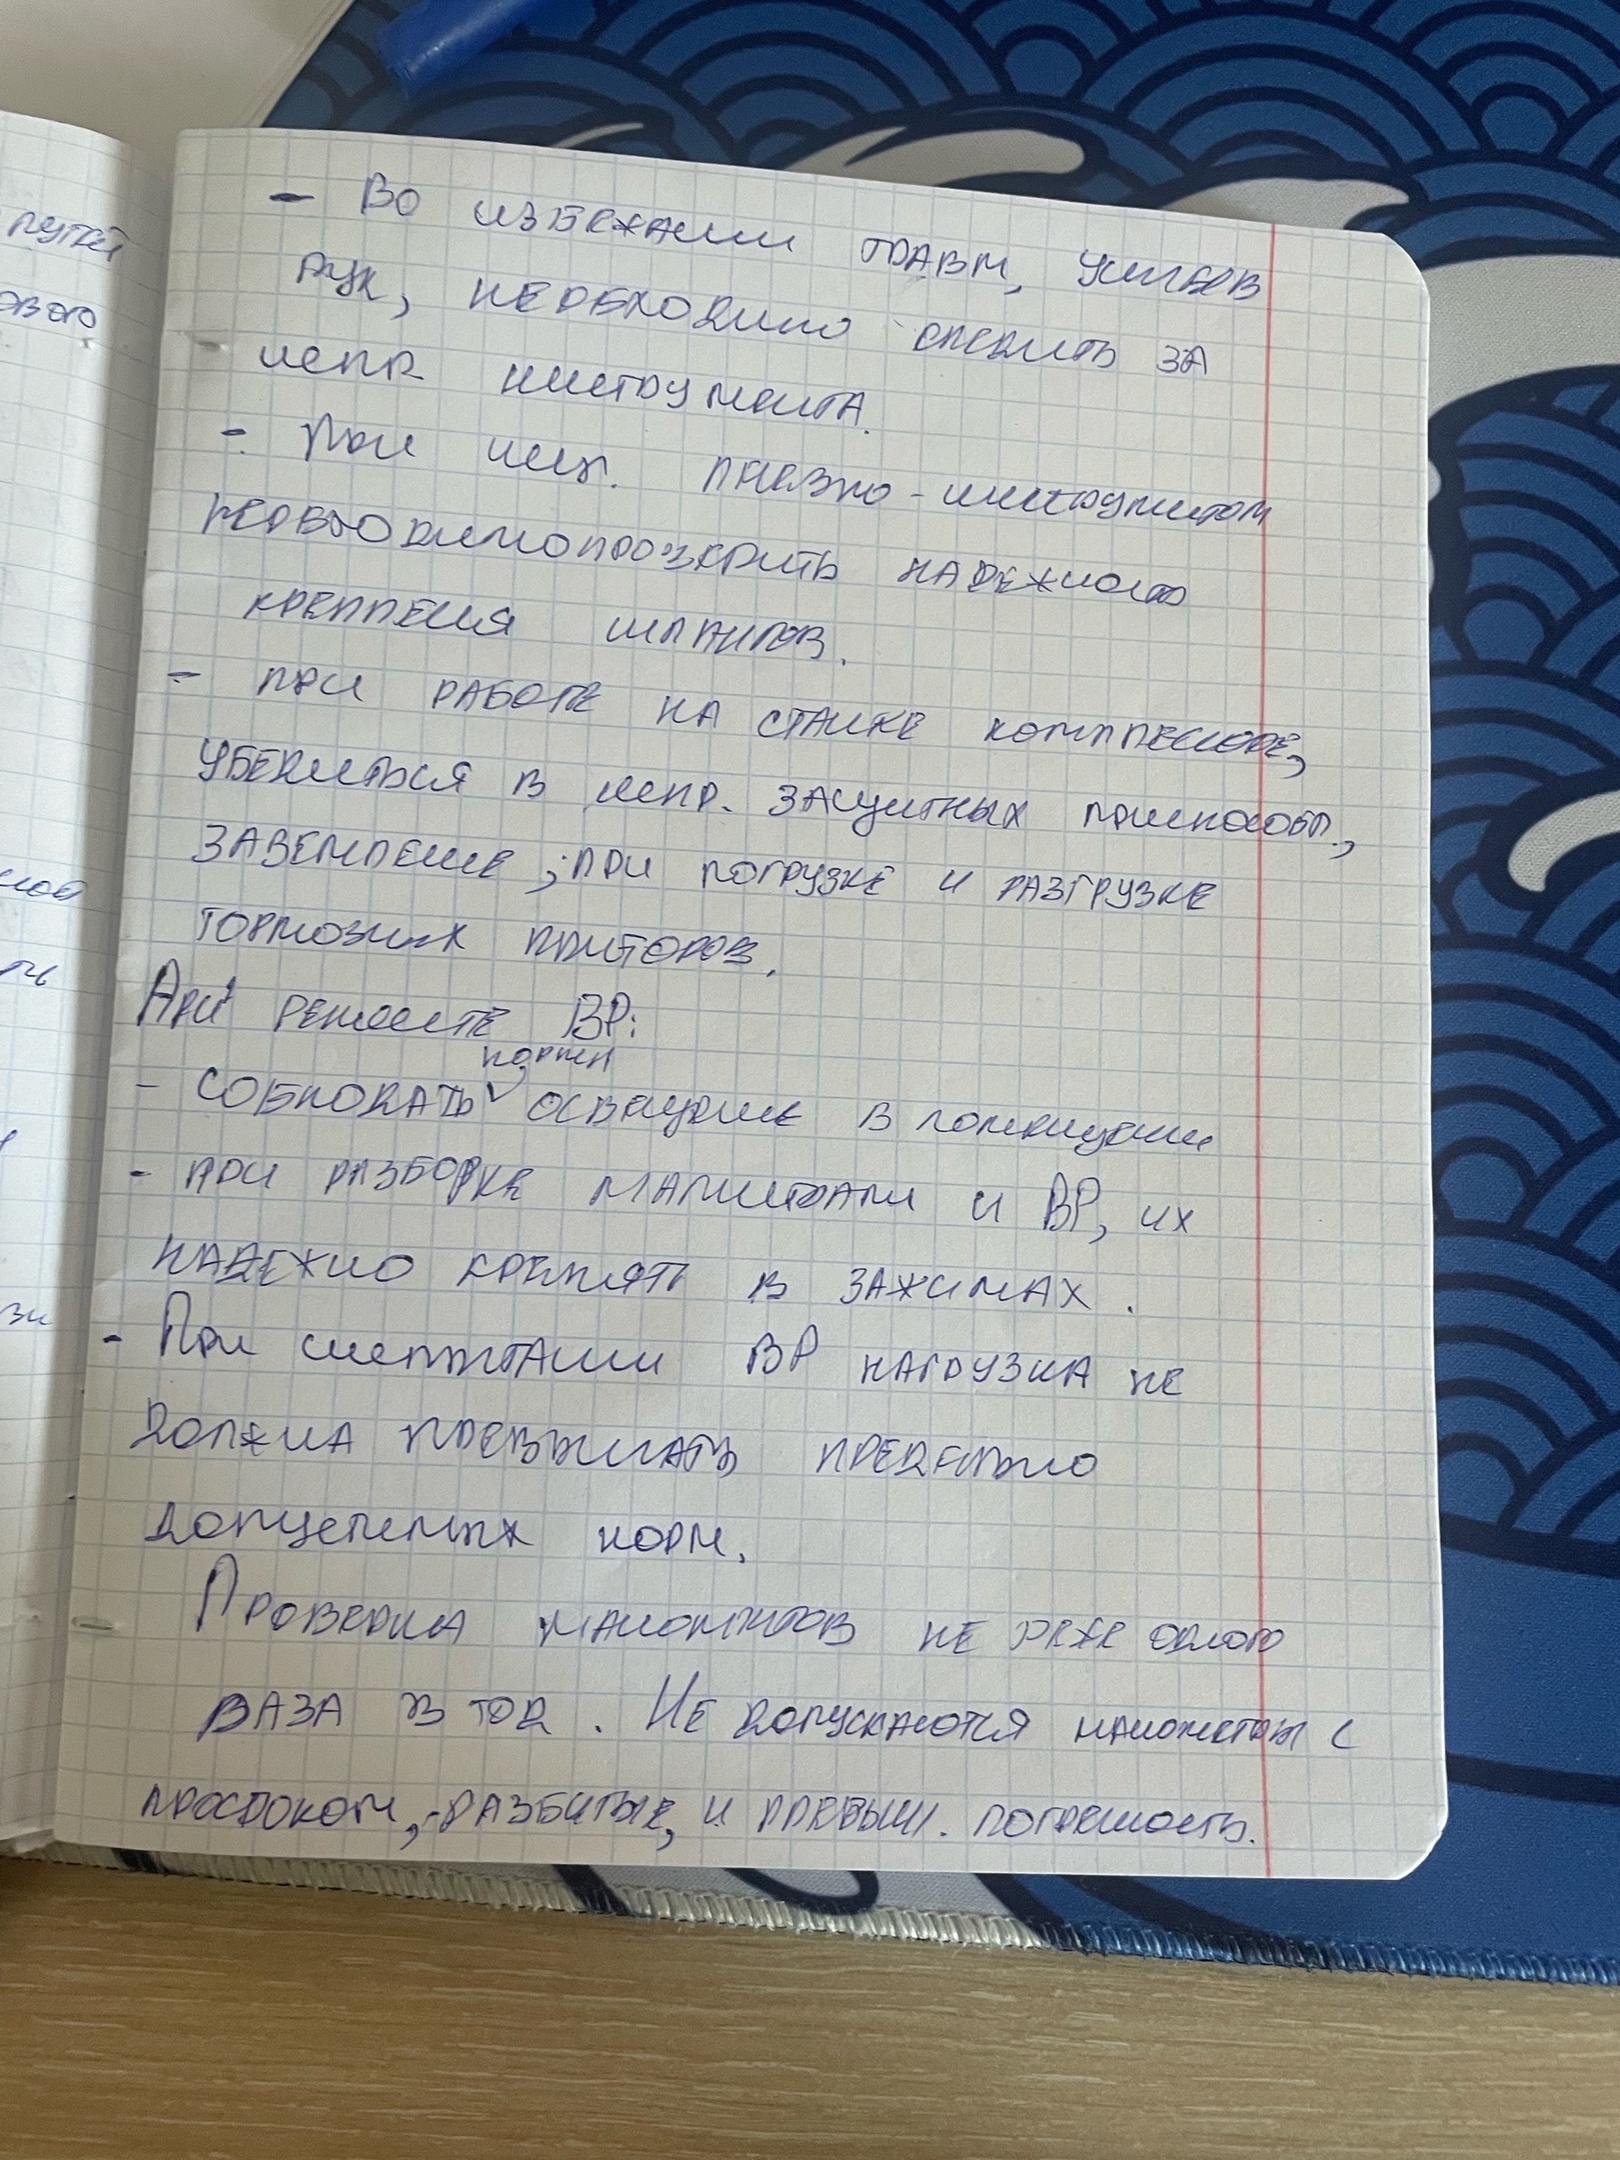 - Во избежании травм, ушибов
рук, необходимо следить за
испр инструмента.
- При исп. пневмо-инструментом
необходимо проверить надежность
крепления шлангов.
- при работе на станке компрессоре,
убедиться в испр. защитных приспособл.,
заземление, при погрузке и разгрузке
тормозных приборов.
При ремонте ВР:
нормал
- соблюдать освещение в помещении
- при разборке магистрали и ВР, их
надежно крепить в зажимах.
- При испытании ВР нагрузка не
должна превышать предельно
допустимых норм.
Проверка манометров не реже одного
раза в год. Не допускаются манометры с
просроком, разбитые, и превыш. погрешность.
путей
ового
ной
ть
зи